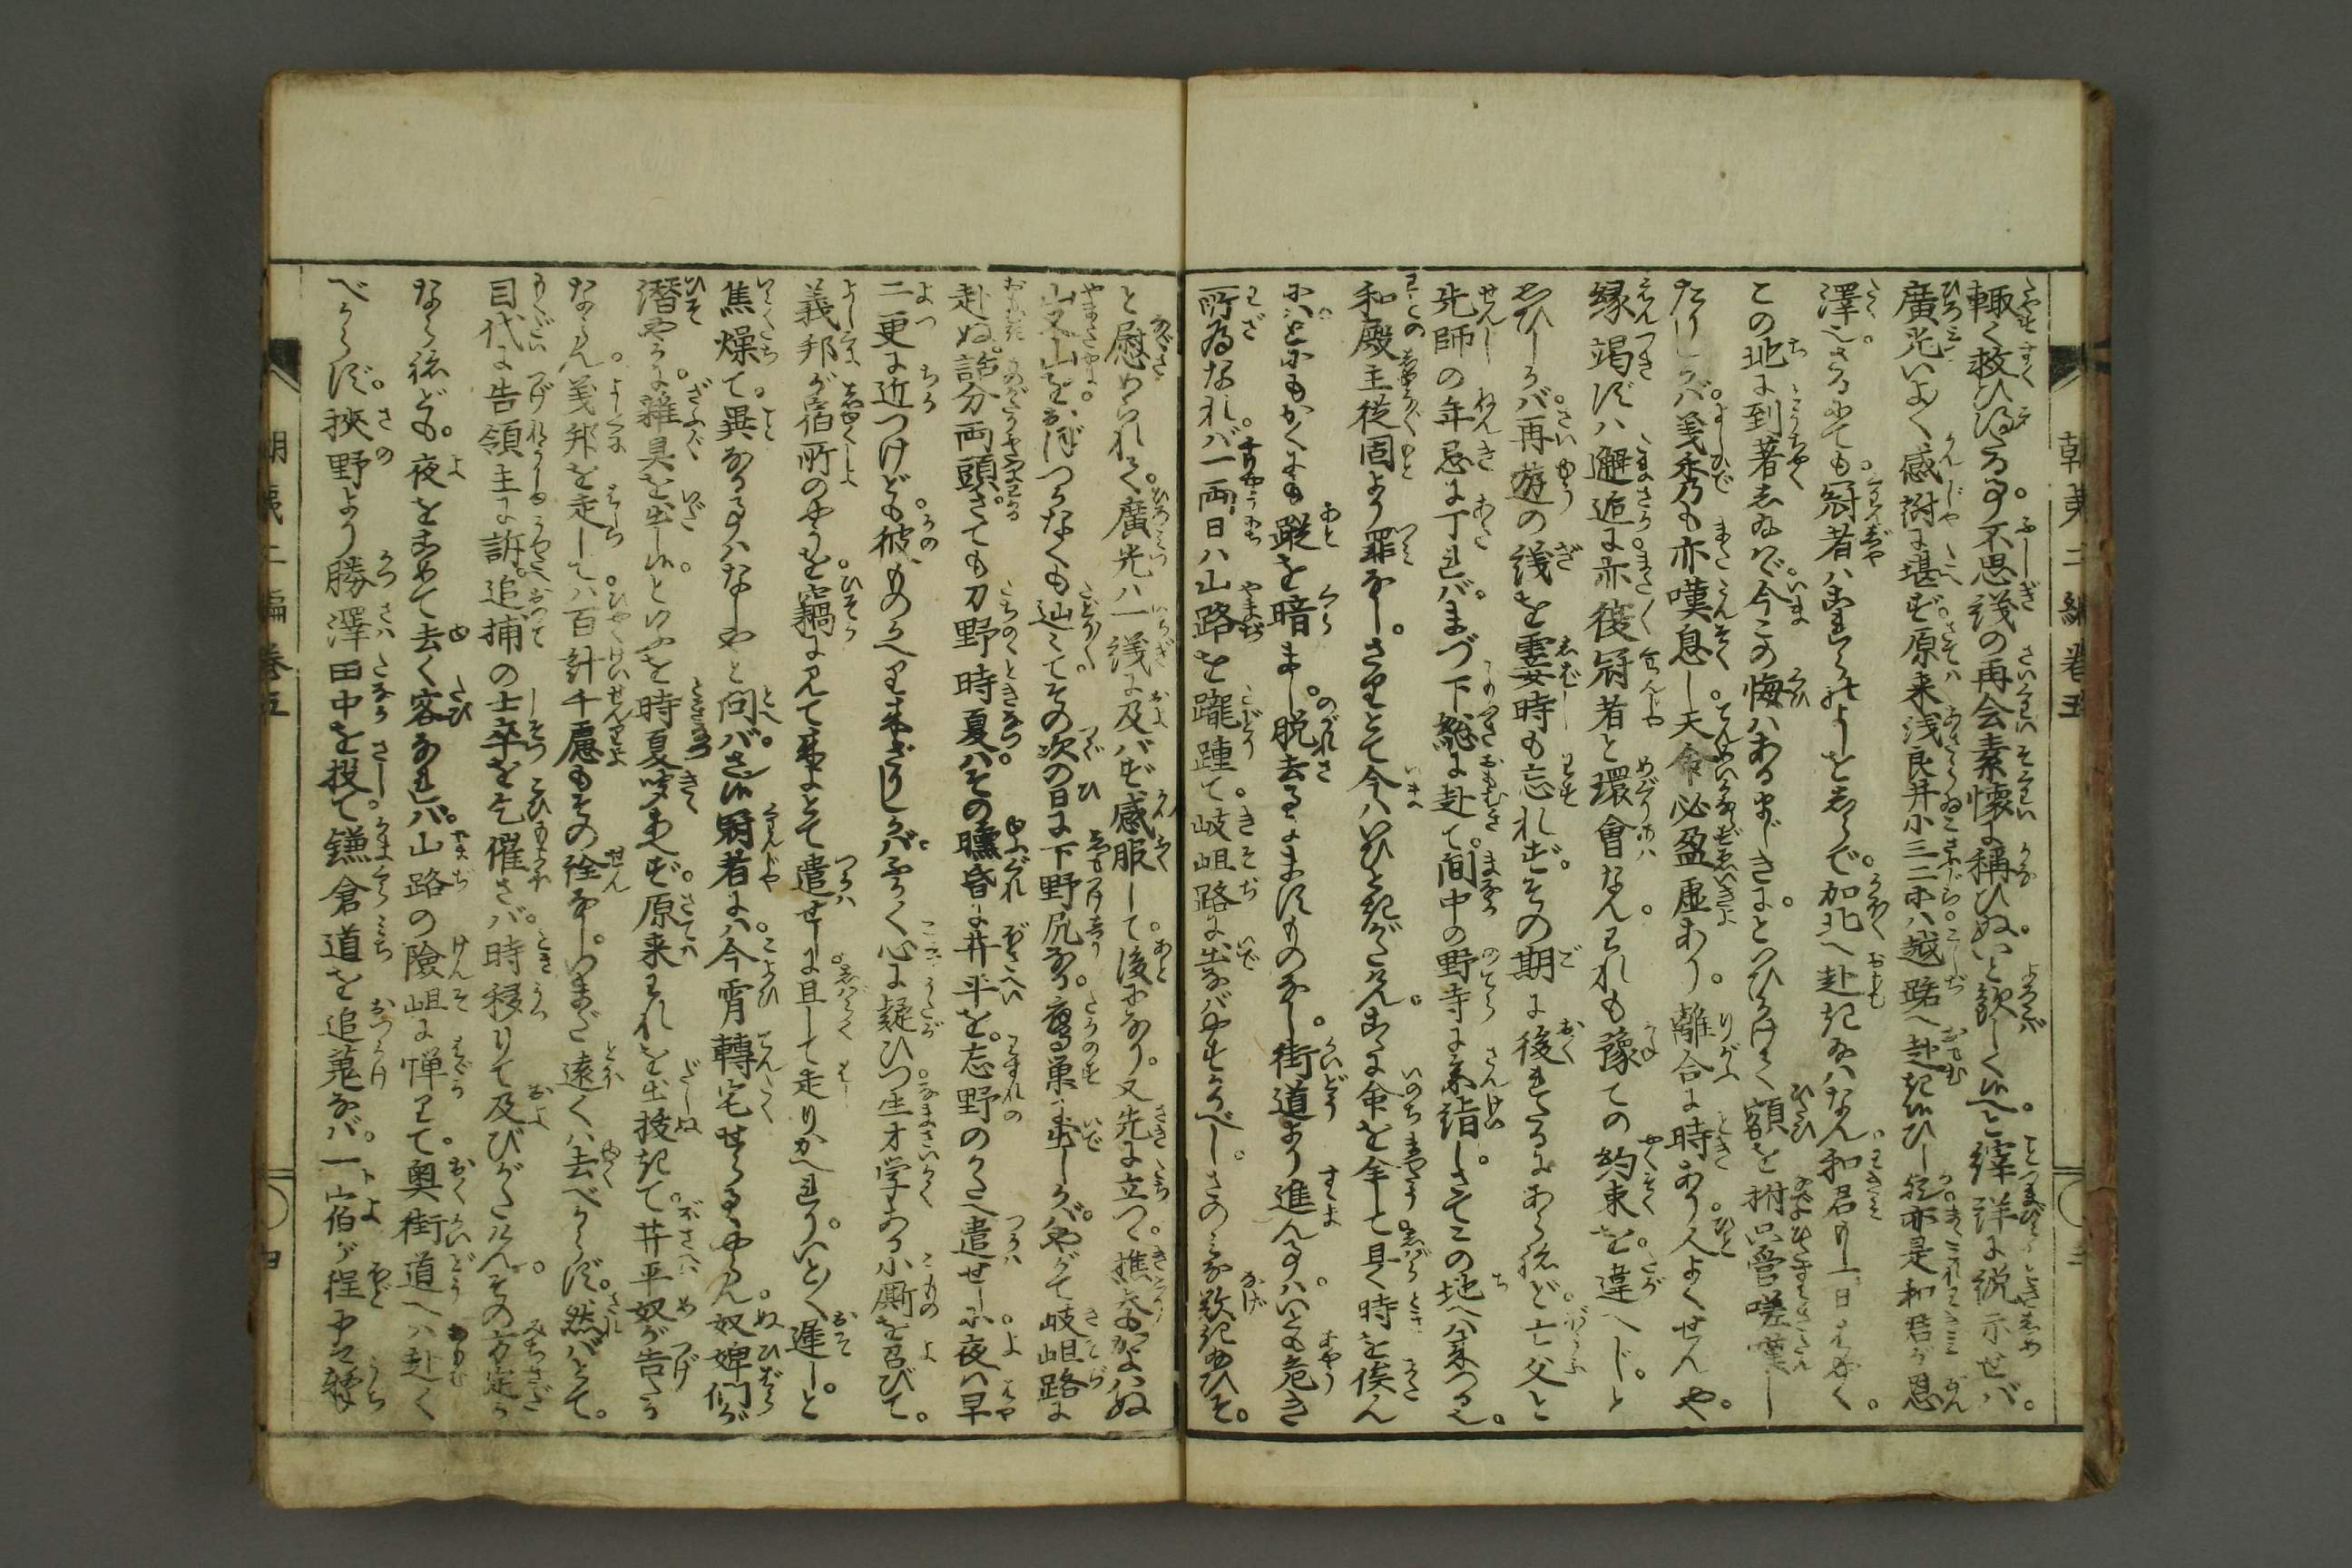 輙く救ひ得たる事。不思議の再会素懐に稱ひぬ。いと歓しく候へと縡詳に説示せバ。
廣光いよく感謝に堪ず。原来浅良井小三二等ハ越路へ赴き給ひし欤。亦是和君が恩
澤也。さるにても冠者ハ良しを知らで。加北へ赴き給ハなん。和君も一日はやく。
この地に到著し給ハで。今この悔ハあるまじきに。といひかけて額を拊。只管嗟嘆し
たりしかバ。義秀も亦嘆息し。天命必盈虚あり。離合に時あり。人よくせんや。
縁竭ずハ邂逅に。亦復冠者と環會なん。われも豫ての約束を。違へじ。と
思ひしかバ。再遊の議を霎時も忘れず。その期に後れたるにあらねど。亡父と
先師の年忌に丁れバ。まづ下総に赴て。間中の野寺に参詣し。さてこの地へハ来つる也。
和殿主従固より罪なし。さりとて今ハいひ解がたけん。命を全して。且く時を俟ん
にハとにもかくにも蹤を暗まし。脱去るにますものなし。街道より進ん事ハ。いとも危き
所為なれバ。一両日ハ山路を躘踵て。岐岨路に出なバやすかるべし。さのみな歎き給ひそ。
と慰められて。廣光ハ一議に及バず感服して。後になり。又先に立つ。樵夫もかよハぬ
山又山を。おぼつかなくも辿こて。その次の日に下野尻なる。鷹巣へ出しかバ。やがて岐岨路に
赴ぬ。話分両頭。さても刀野時夏ハ。その曛昏に井平を。忘野のかたへ遣せしに。夜ハ早
二更に近つけども。彼ものかへり来ざりしかバ。心に疑ひつ。生才学ある小厮を召びて。
義邦が宿所のやうを。竊に見て来よとて遣せしに。且して走りかへれり。いと遅し。と
焦燥て。異なる事ハなしやと問バ。さン候冠者にハ。今宵轉宅せらるゝやらん。奴婢們が
潜やかに。雑具を出し候。といふを時夏聞あへず。原来われを出抜きて。井平奴が告たる
ならん。義邦を走してハ。百計千慮もその詮なし。いまだ遠くハ去べからず。然バとて。
目代に告領主に訴。追捕の士卒を乞催さバ。時移りて及びがたけん。その方定か
ならねども。夜をこめて去く客なれバ。山路の險岨に憚りて。奥街道へハ赴く
べからず。狹野より勝澤田中を投て。鎌倉道を追蒐なバ。一宿が程